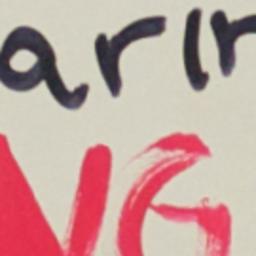 arin
NG